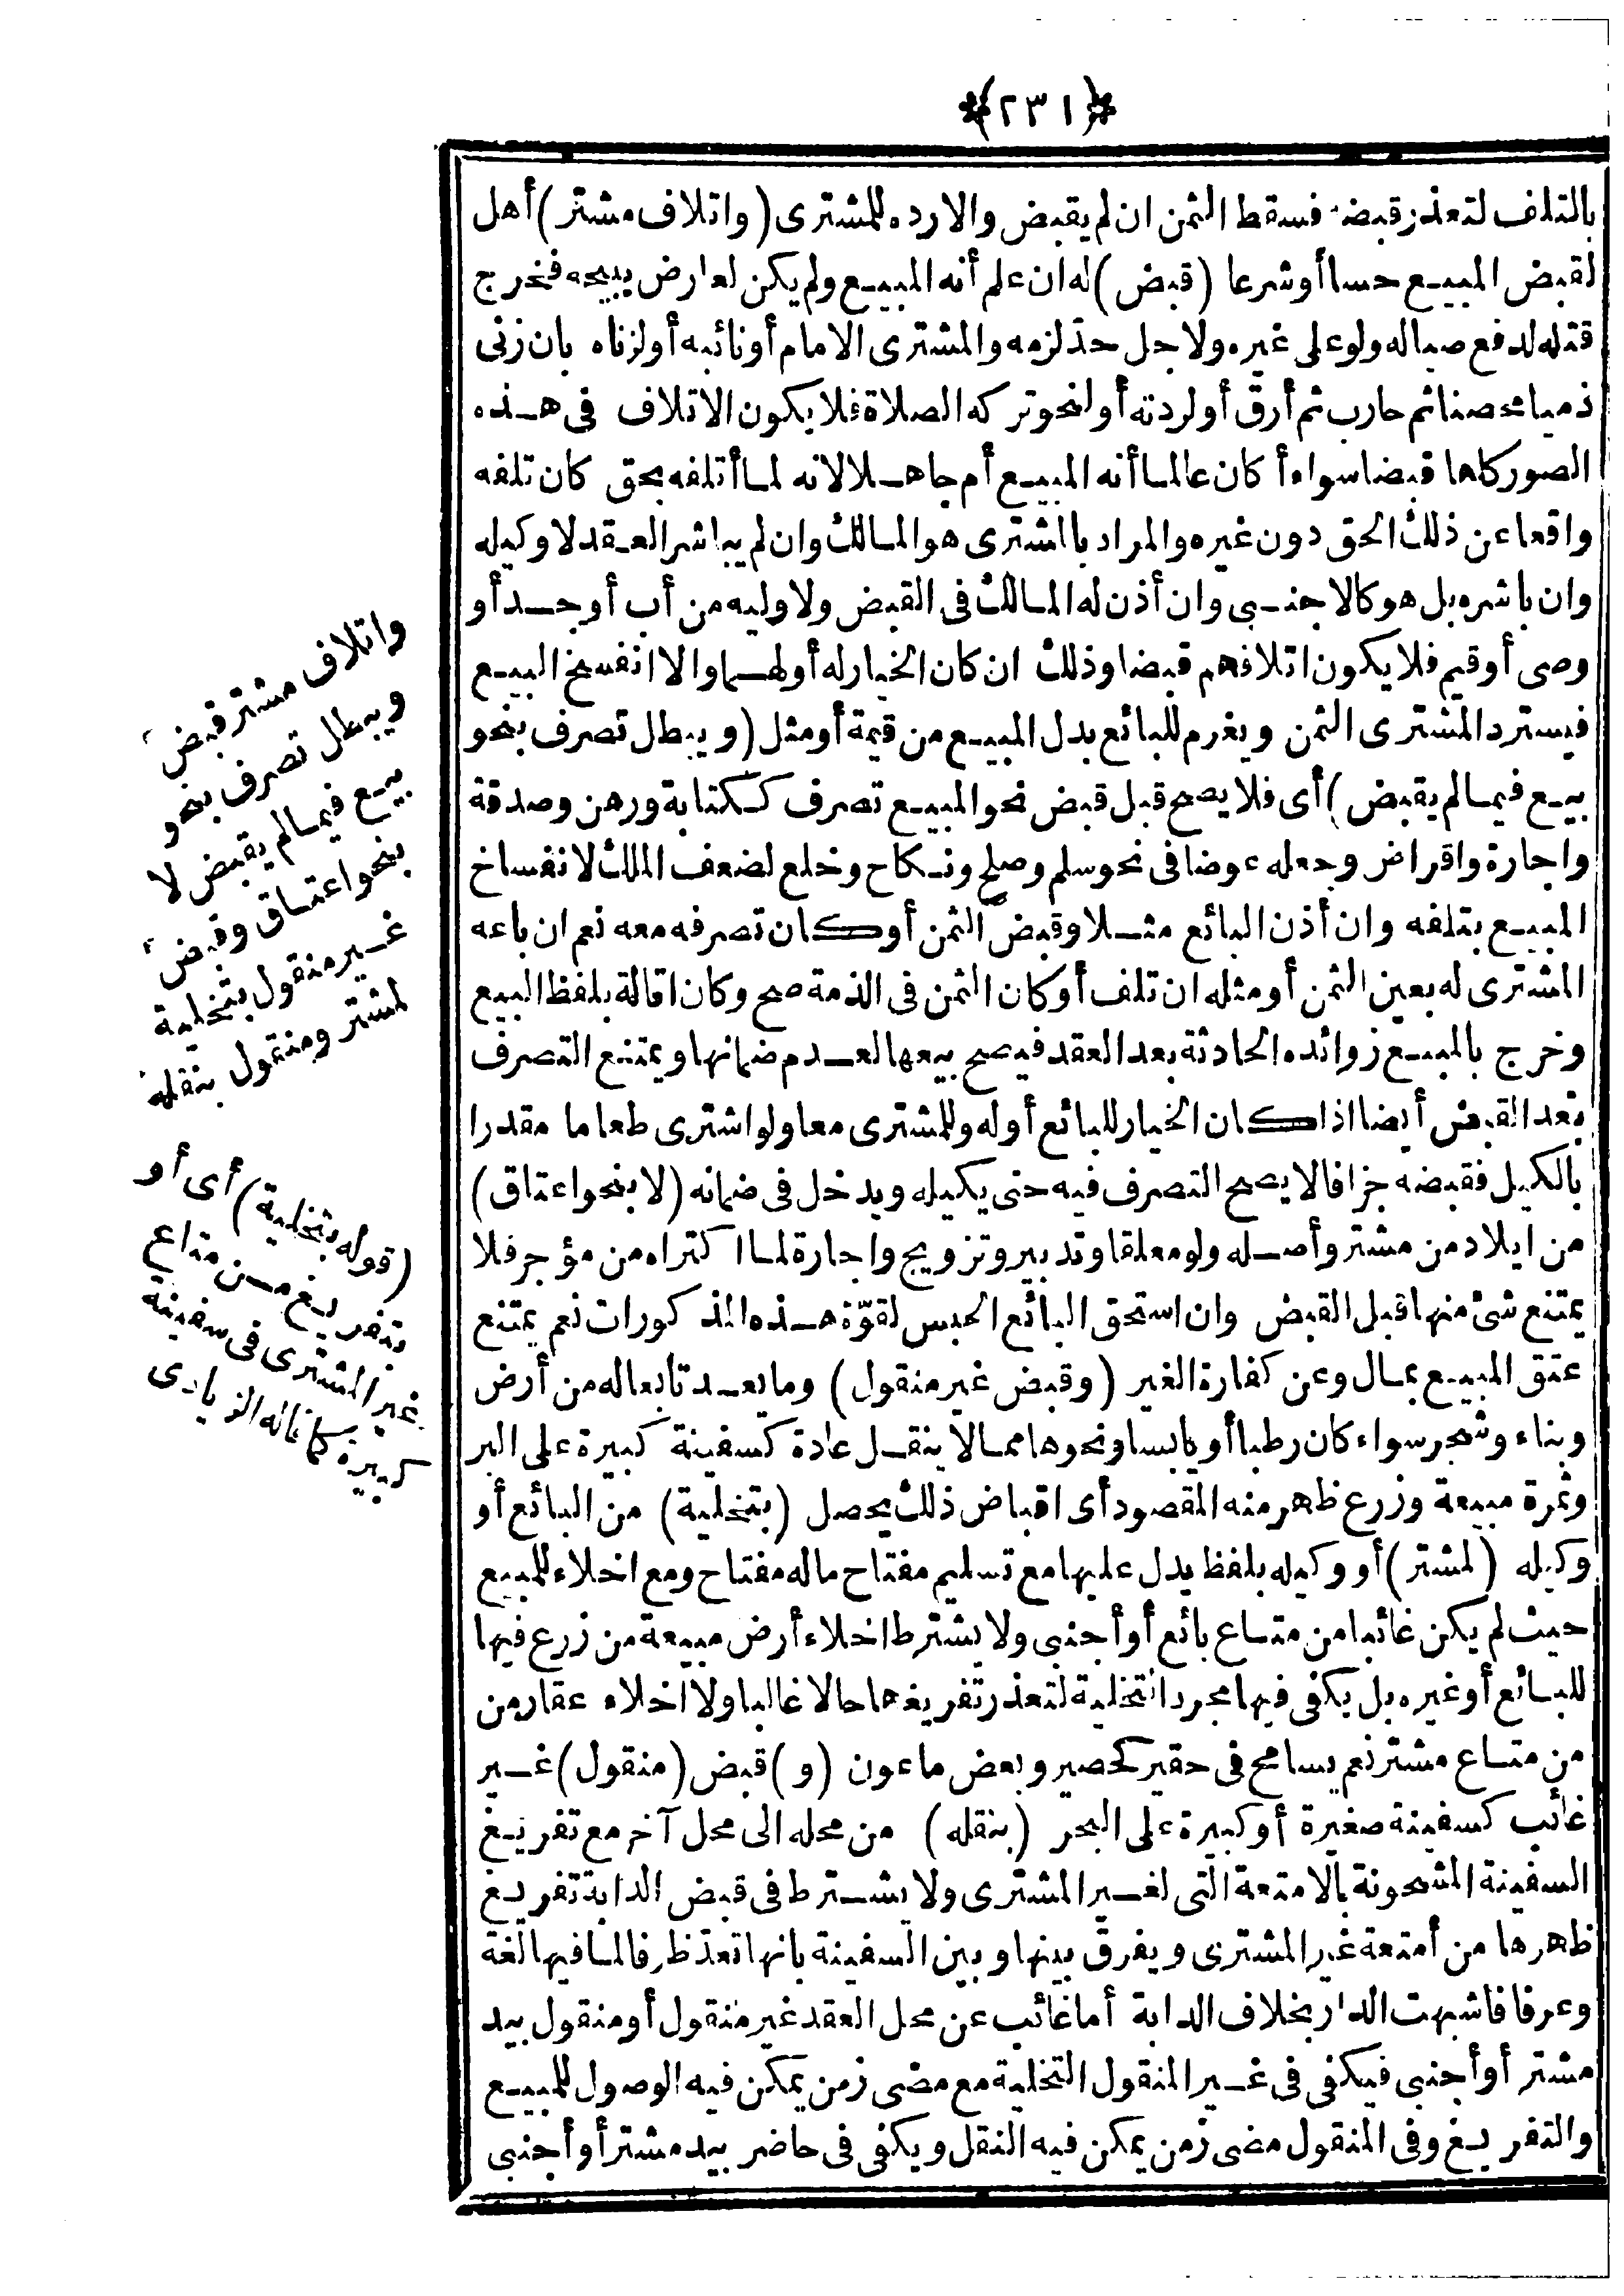 ﴿٢٣١﴾
بالتلف لتعذر قبضه فسقط الثمن ان لم يقبض والارده للمشترى (واتلاف مشتر) أهل
لقبض المبيع حسا أو شرعا (قبض) له ان علم أنه المبيع ولم يكن لعارض يبيحه فخرج
قتله لدفع صياله ولو على غيره ولاجل حد لزمه والمشترى الامام أو نائبه أو لزناه بان زنى
ذميا محصنا ثم حارب ثم أرق أو لردته أو لنحو تركه الصلاة فلا يكون الاتلاف فى هذه
الصور كلها قبضا سواء أكان عالما أنه المبيع أم جاهلا لانه لما أتلفه بحق كان تلفه
واقعا عن ذلك الحق دون غيره والمراد بالمشترى هو المالك وان لم يباشر العقد لا وكيله
وان باشره بل هو كالاجنبى وان أذن له المالك فى القبض ولا وليه من أب أو جد أو
وصى أو قيم فلا يكون اتلافهم قبضا وذلك ان كان الخيار له أو لهما والا انفسخ البيع
فيسترد المشترى الثمن ويغرم للبائع بدل المبيع من قيمة أو مثل (ويبطل تصرف بنحو
بيع فيما لم يقبض) أى فلا يصح قبل قبض نحو المبيع تصرف ككتابة ورهن وصدقة
واجارة واقراض وجعله عوضا فى نحو سلم وصلح ونكاح وخلع لضعف الملك لانفساخ
المبيع بتلفه وان أذن البائع مثلا وقبض الثمن أو كان تصرفه معه نعم ان باعه
المشترى له بعين الثمن أو مثله ان تلف أو كان الثمن فى الذمة صح وكان اقالة بلفظ البيع
وخرج بالمبيع زوائده الحادثة بعد العقد فيصح بيعها لعدم ضمانها ويمتنع التصرف
بعد القبض أيضا اذا كان الخيار للبائع أو له وللمشترى معا ولو اشترى طعاما مقدرا
بالكيل فقبضه جزافا لا يصح التصرف فيه حتى يكيله ويدخل فى ضمانه (لا بنحو اعتاق)
من ايلاد من مشتر وأصله ولو معلقا وتدبير وتزويج واجارة لما اكتراه من مؤجر فلا
يمتنع شئ منها قبل القبض وان استحق البائع الحبس لقوّة هذه المذكورات نعم يمتنع
عتق المبيع بمال وعن كفارة الغير (وقبض غير منقول) وما يعد تابعا له من أرض
وبناء وشجر سواء كان رطبا أو يابسا ونحوها مما لا ينقل عادة كسفينة كبيرة على البر
وثمرة مبيعة وزرع ظهر منه المقصود أى اقباض ذلك يحصل (بتخلية) من البائع أو
وكيله (لمشتر) أو وكيله بلفظ يدل عليها مع تسليم مفتاح ماله مفتاح ومع اخلاء للمبيع
حيث لم يكن غائبا من متاع بائع أو أجنبى ولا يشترط اخلاء أرض مبيعة من زرع فيها
للبائع أو غيره بل يكفى فيها مجرد التخلية لتعذر تفريغها حالا غالبا ولا اخلاء عقار من
من متاع مشتر نعم يسامح فى حقير كحصير وبعض ماعون (و) قبض (منقول) غير
غائب كسفينة صغيرة أو كبيرة على البحر (بنقله) من محله الى محل آخر مع تفريغ
السفينة المشحونة بالامتعة التى لغير المشترى ولا يشترط فى قبض الدابة تفريغ
ظهرها من أمتعة غير المشترى ويفرق بينها وبين السفينة بانها تعد ظرفا لما فيها لغة
وعرفا فاشبهت الدار بخلاف الدابة أما غائب عن محل العقد غير منقول أو منقول بيد
مشتر أو أجنبى فيكفى فى غير المنقول التخلية مع مضى زمن يمكن فيه الوصول للمبيع
والتفريغ وفى المنقول مضى زمن يمكن فيه النقل ويكفى فى حاضر بيد مشتر أو أجنبى
واتلاف مشتر قبض
ويبطل تصرف بنحو
بيع فيما لم يقبض لا
بنحو اعتاق وقبض
غير منقول بتخلية
لمشتر ومنقول بنقله
(قوله بتخلية) أى أو
بتفريغ من متاع
غير المشترى فى سفينة
كبيرة كما قاله الزيادى